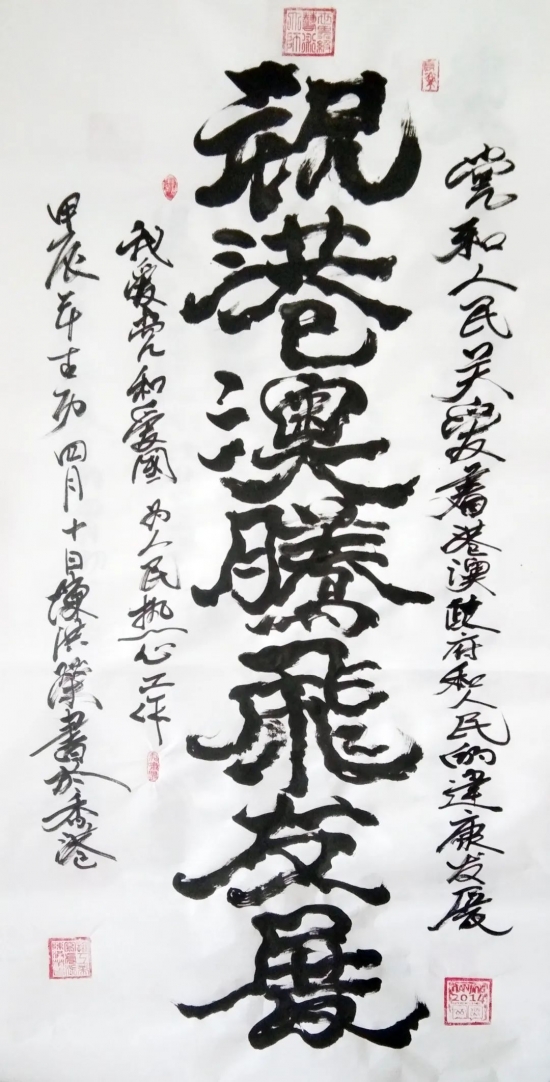 党和人民关爱着港澳政府和人民的建康发展
祝港澳騰飛发展
我爱党和爱国 为人民热心工作
甲辰年 四月十日陳洪 書於香港
NANJING
2014